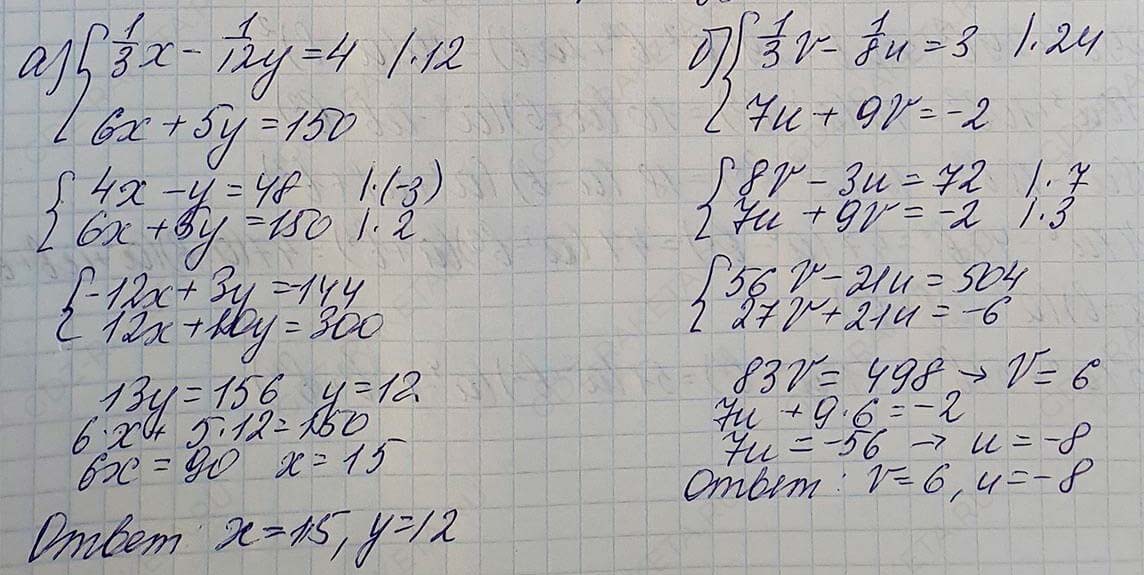 а) { 1/3 x - 1/12 y = 4 | · 12
6x + 5y = 150
{ 4x - y = 48 | · (-3)
6x + 5y = 150 | · 2
{ -12x + 3y = -144
12x + 10y = 300
13y = 156 y = 12
6 · x + 5 · 12 = 150
6x = 90 x = 15
Ответ: x = 15, y = 12
б) { 1/3 v - 1/8 u = 3 | · 24
7u + 9v = -2
{ 8v - 3u = 72 | · 7
7u + 9v = -2 | · 3
{ 56v - 21u = 504
27v + 21u = -6
83v = 498 → v = 6
7u + 9 · 6 = -2
7u = -56 → u = -8
Ответ: v = 6, u = -8